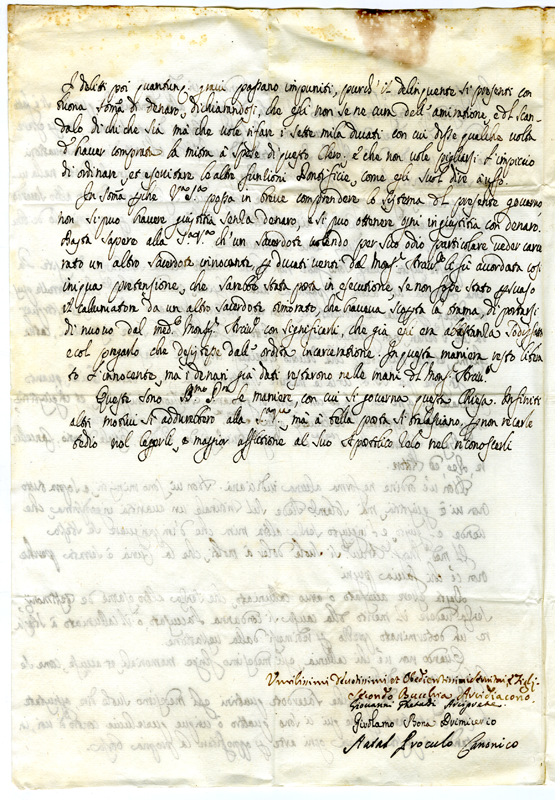 I deliti poi quantunq. gravi passano impuniti, purche il delinquente si presenti con
buona somma di denaro, dichiarandosi, che egli non se ne cura dell'amiratione, e del scan-
dalo di chi che sia mà che vole rifare i sette mila ducati con cui disse qualche volta
d'haver comprata la mitra à spese di questo Clero, e che non vole pigliarsi l'impiccio
di ordinare, et essercitare le altre funtioni Pontificie, come egli suol dire à
In somma puole V.ra S.tà possa in breve comprendere lo sistema del presente governo
non si può havere giustitia senza denaro, e si può ottenere ogni ingiustitia con denaro.
Basta sapere alla S.tà V.ra ch'un Sacerdote volendo per suo odio particolare veder carce
rato un altro Sacerdote innocente, p ducati venti dal Mons.r Arciv.o li fù accordata cosi
iniqua pretensione, che sarebbe stata posta in essecutione, se non fosse stato
il calunniatore da un altro sacerdote onorato, che haveva la somma, di portarsi
di nuovo dal med.o Mons.r Arciv.o con significarli, che già era abastanza
e col pregarlo che desistesse dall'ordita incarceratione. In questa maniera restò libera
to l'innocente, ma i denari già dati restarono nelle mani di Mons.r Arciv.o
Queste sono B.mo P.re le maniere, con cui si governa questa Chiesa. Infiniti
altri motivi si addurrebero alla S.tà V.ra, mà à bella posta si tralasciano, p non recarle
tedio nel leggerli, e maggior afflitione al suo Apostolico Zelo nel riconoscerli
Umilissimi Devotissimi et Obedientissimi Servitori e Figli
Secondo Bucchia Arcidiacono
Giovanni Arciprete
Girolamo Bona Primicerio
Natal Proculo Canonico